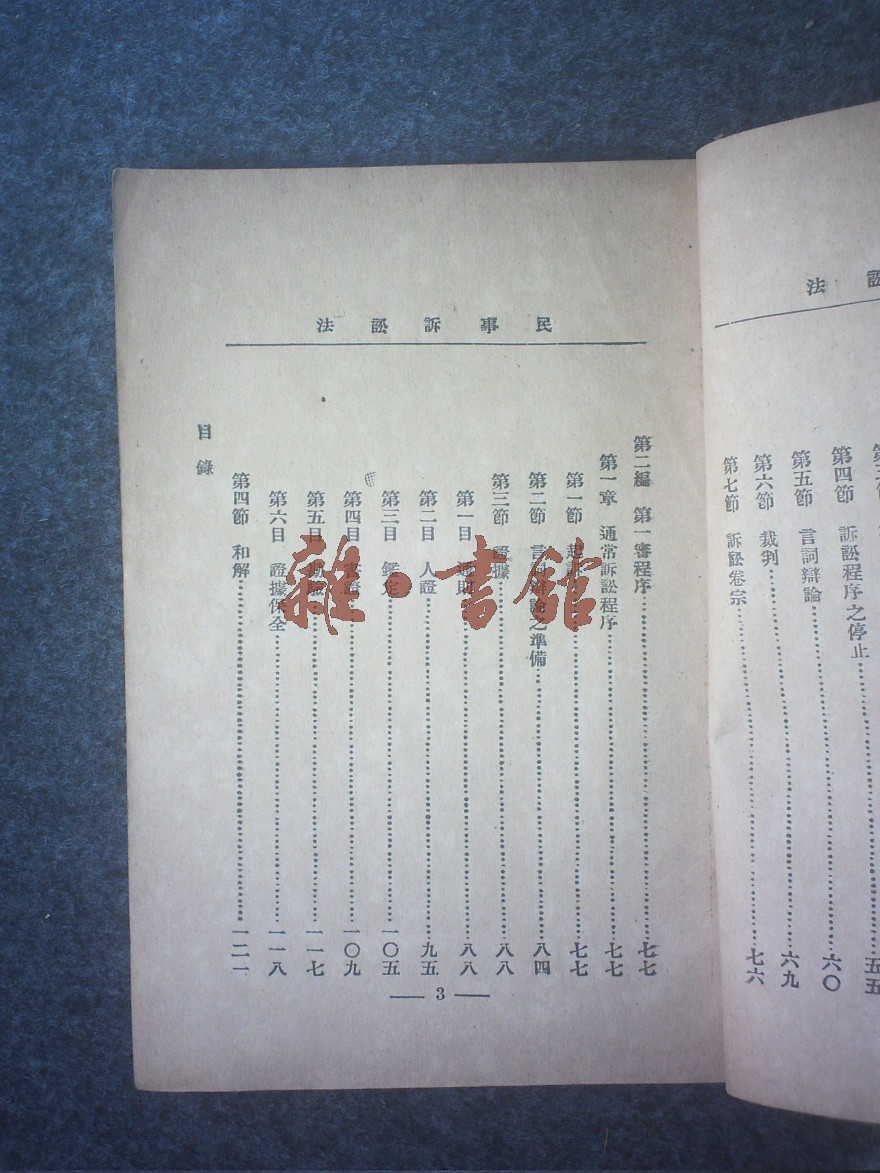 訟法
第四節 訴訟程序之停止……五五
第五節 言詞辯論……六〇
第六節 裁判……六九
第七節 訴訟卷宗……七六
民事訴訟法
第二編 第一審程序……七七
第一章 通常訴訟程序……七七
第一節 起訴……七七
第二節 言詞辯論之準備……八四
第三節 證據……八八
第一目 通則……八八
第二目 人證……九五
第三目 鑑定……一〇五
第四目 書證……一〇九
第五目 勘驗……一一七
第六目 證據保全……一一八
第四節 和解……一二一
目錄
— 3 —
雜·書館